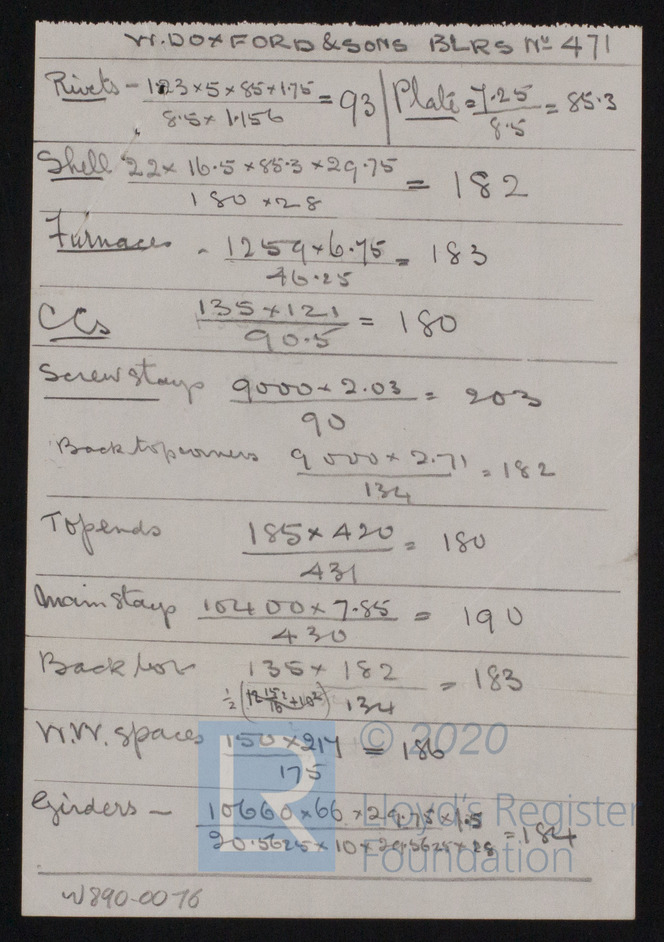 W. DOXFORD & SONS BLRS No 471
Rivets - 1.23 × 5 × 85 × 1.75 / 8.5 × 1.156 = 93 | Plate = 7.25 / 8.5 = 85.3
Shell 22 × 16.5 × 85.3 × 29.75 / 180 × 28 = 182
Furnaces - 1259 × 6.75 / 46.25 = 183
CCs 135 × 121 / 90.5 = 180
Screw stays 9000 × 2.03 / 90 = 203
Back top corners 9000 × 2.71 / 134 = 182
Top ends 185 × 420 / 431 = 180
Main stays 10400 × 7.85 / 430 = 190
Back bot 135 × 182 / 134 = 183
W.W. spaces 150 × 217 / 175 = 186
Girders - 10660 × 66 × 29.75 × 1.5 / 20.5625 × 10 × 29.5625 × 28 = 184
W890-0076
© 2020
Lloyd's Register
Foundation
LR